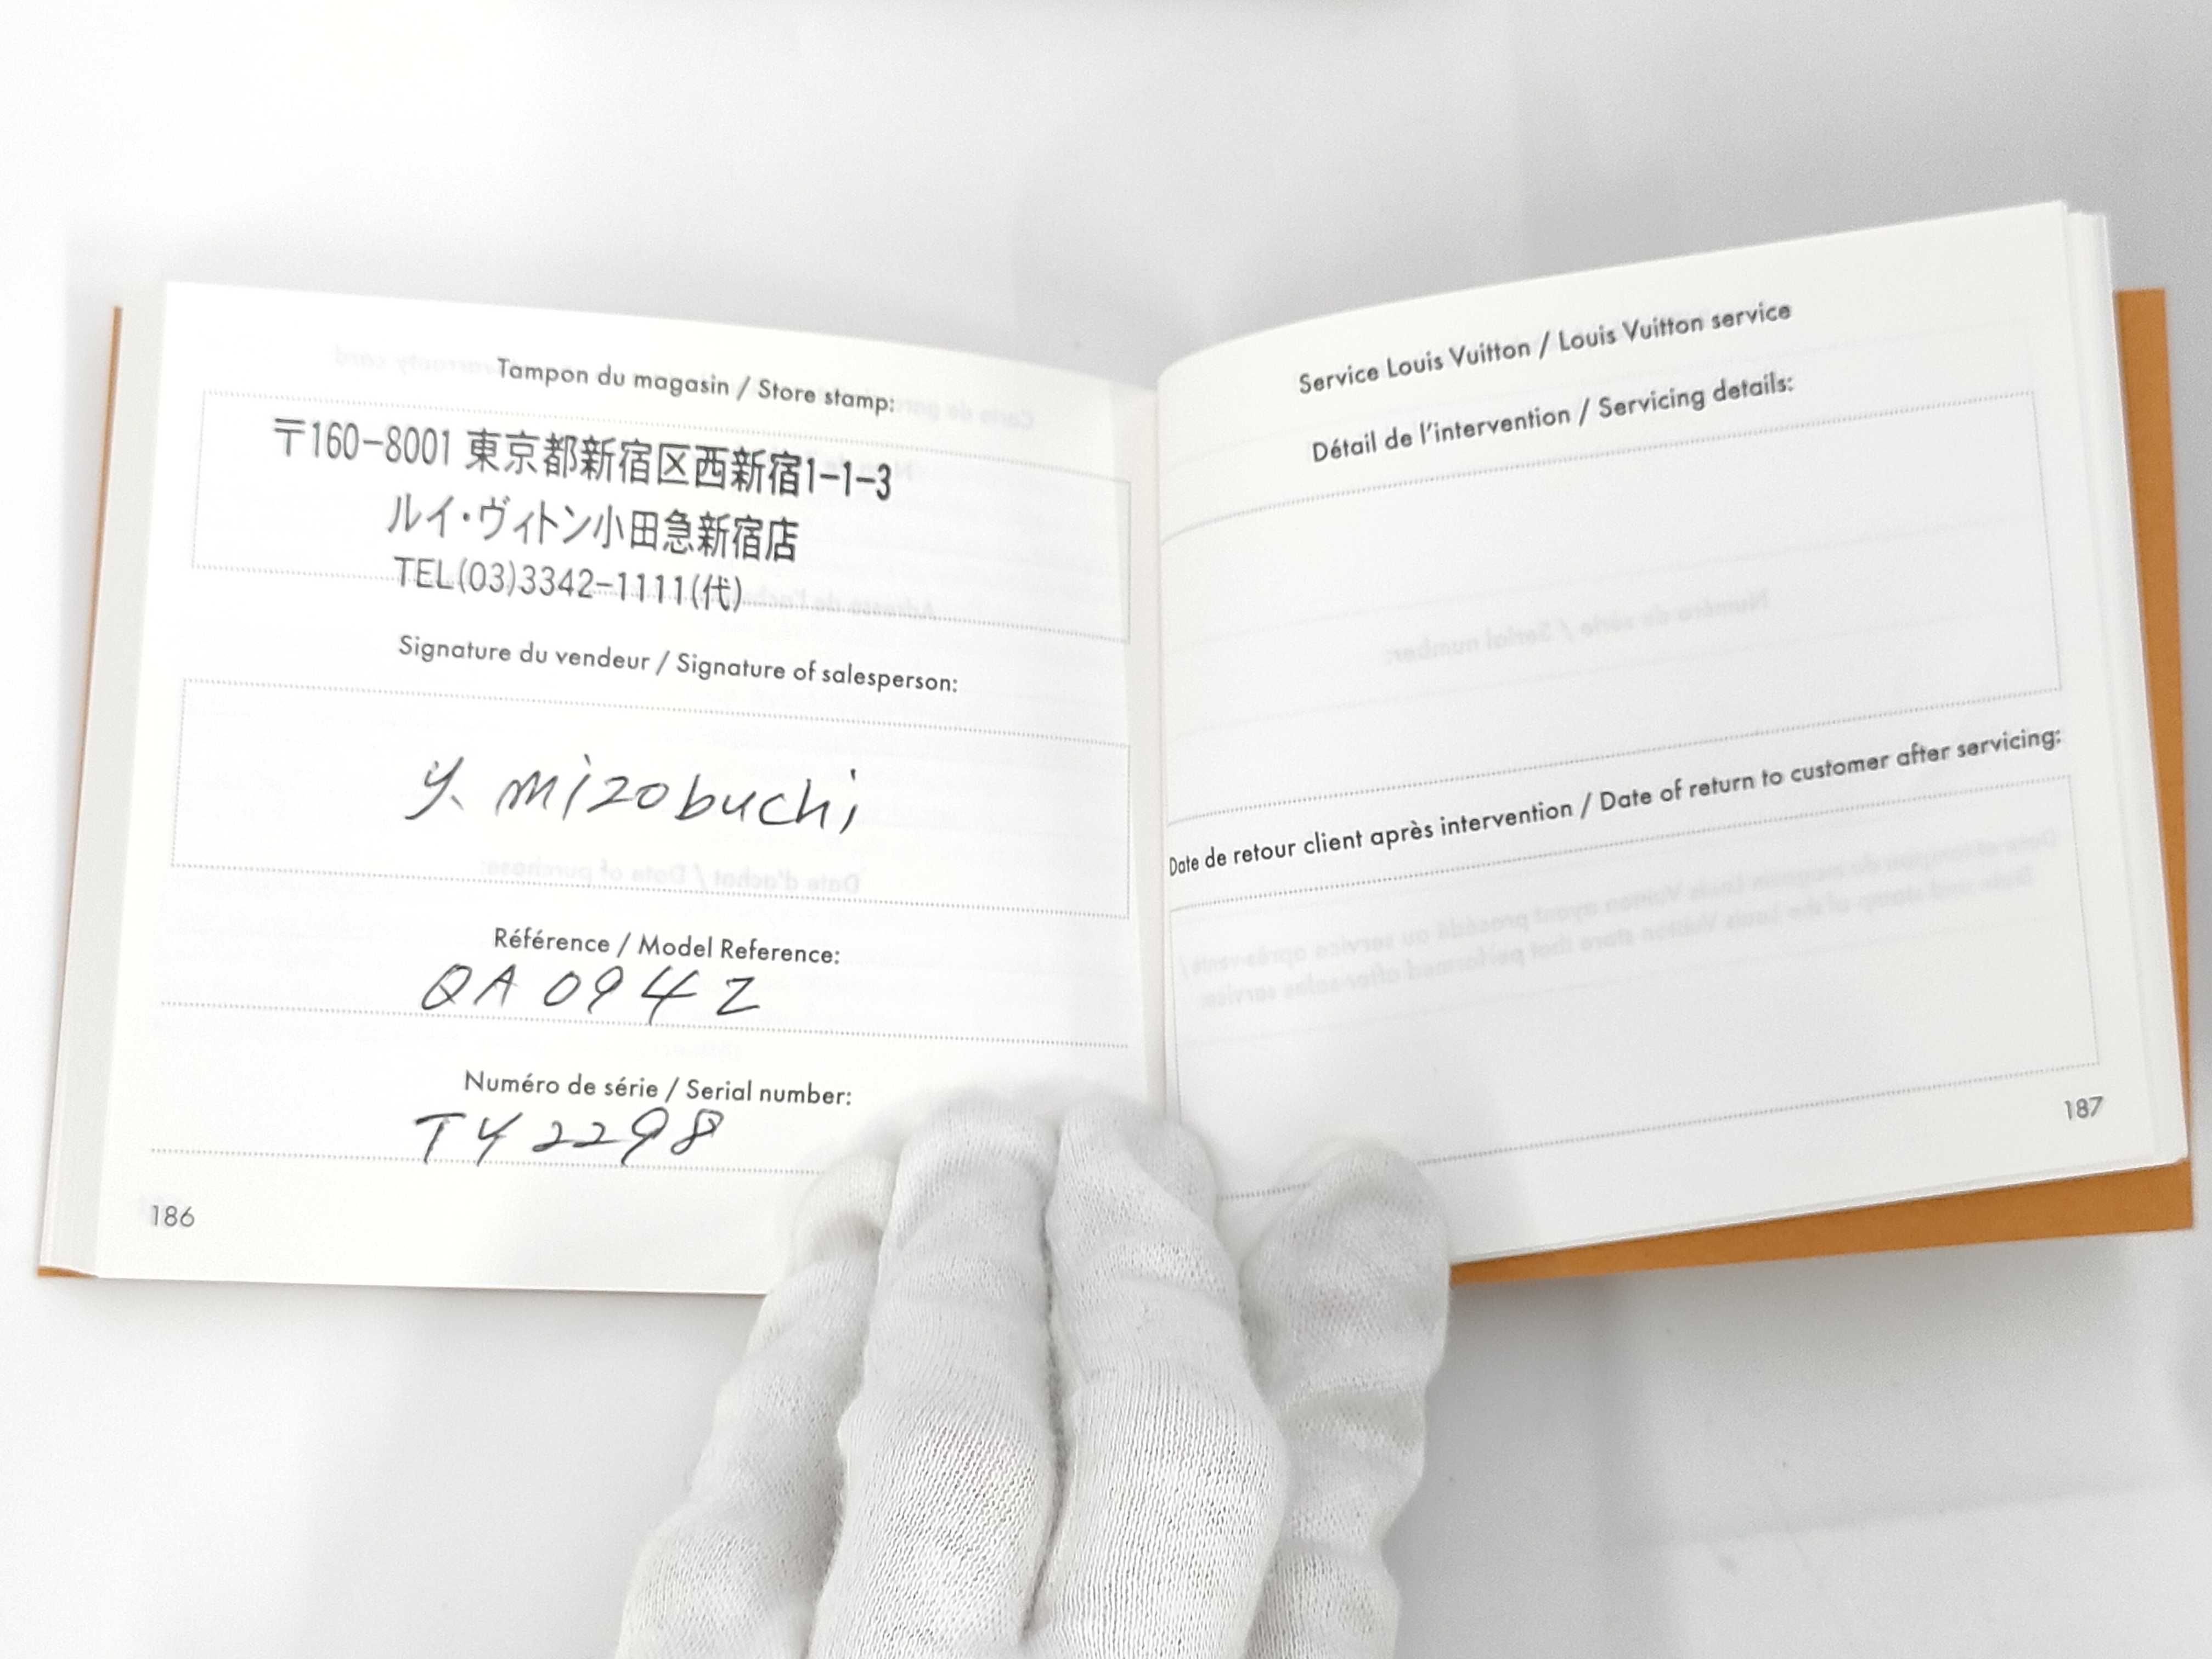 Tampon du magasin / Store stamp:
〒160-8001 東京都新宿区西新宿1-1-3
ルイ・ヴィトン小田急新宿店
TEL(03)3342-1111(代)
Signature du vendeur / Signature of salesperson:
y. mizobuchi
Référence / Model Reference:
QA094Z
Numéro de série / Serial number:
TY2298
186
Service Louis Vuitton / Louis Vuitton service
Détail de l'intervention / Servicing details:
Date de retour client après intervention / Date of return to customer after servicing:
187